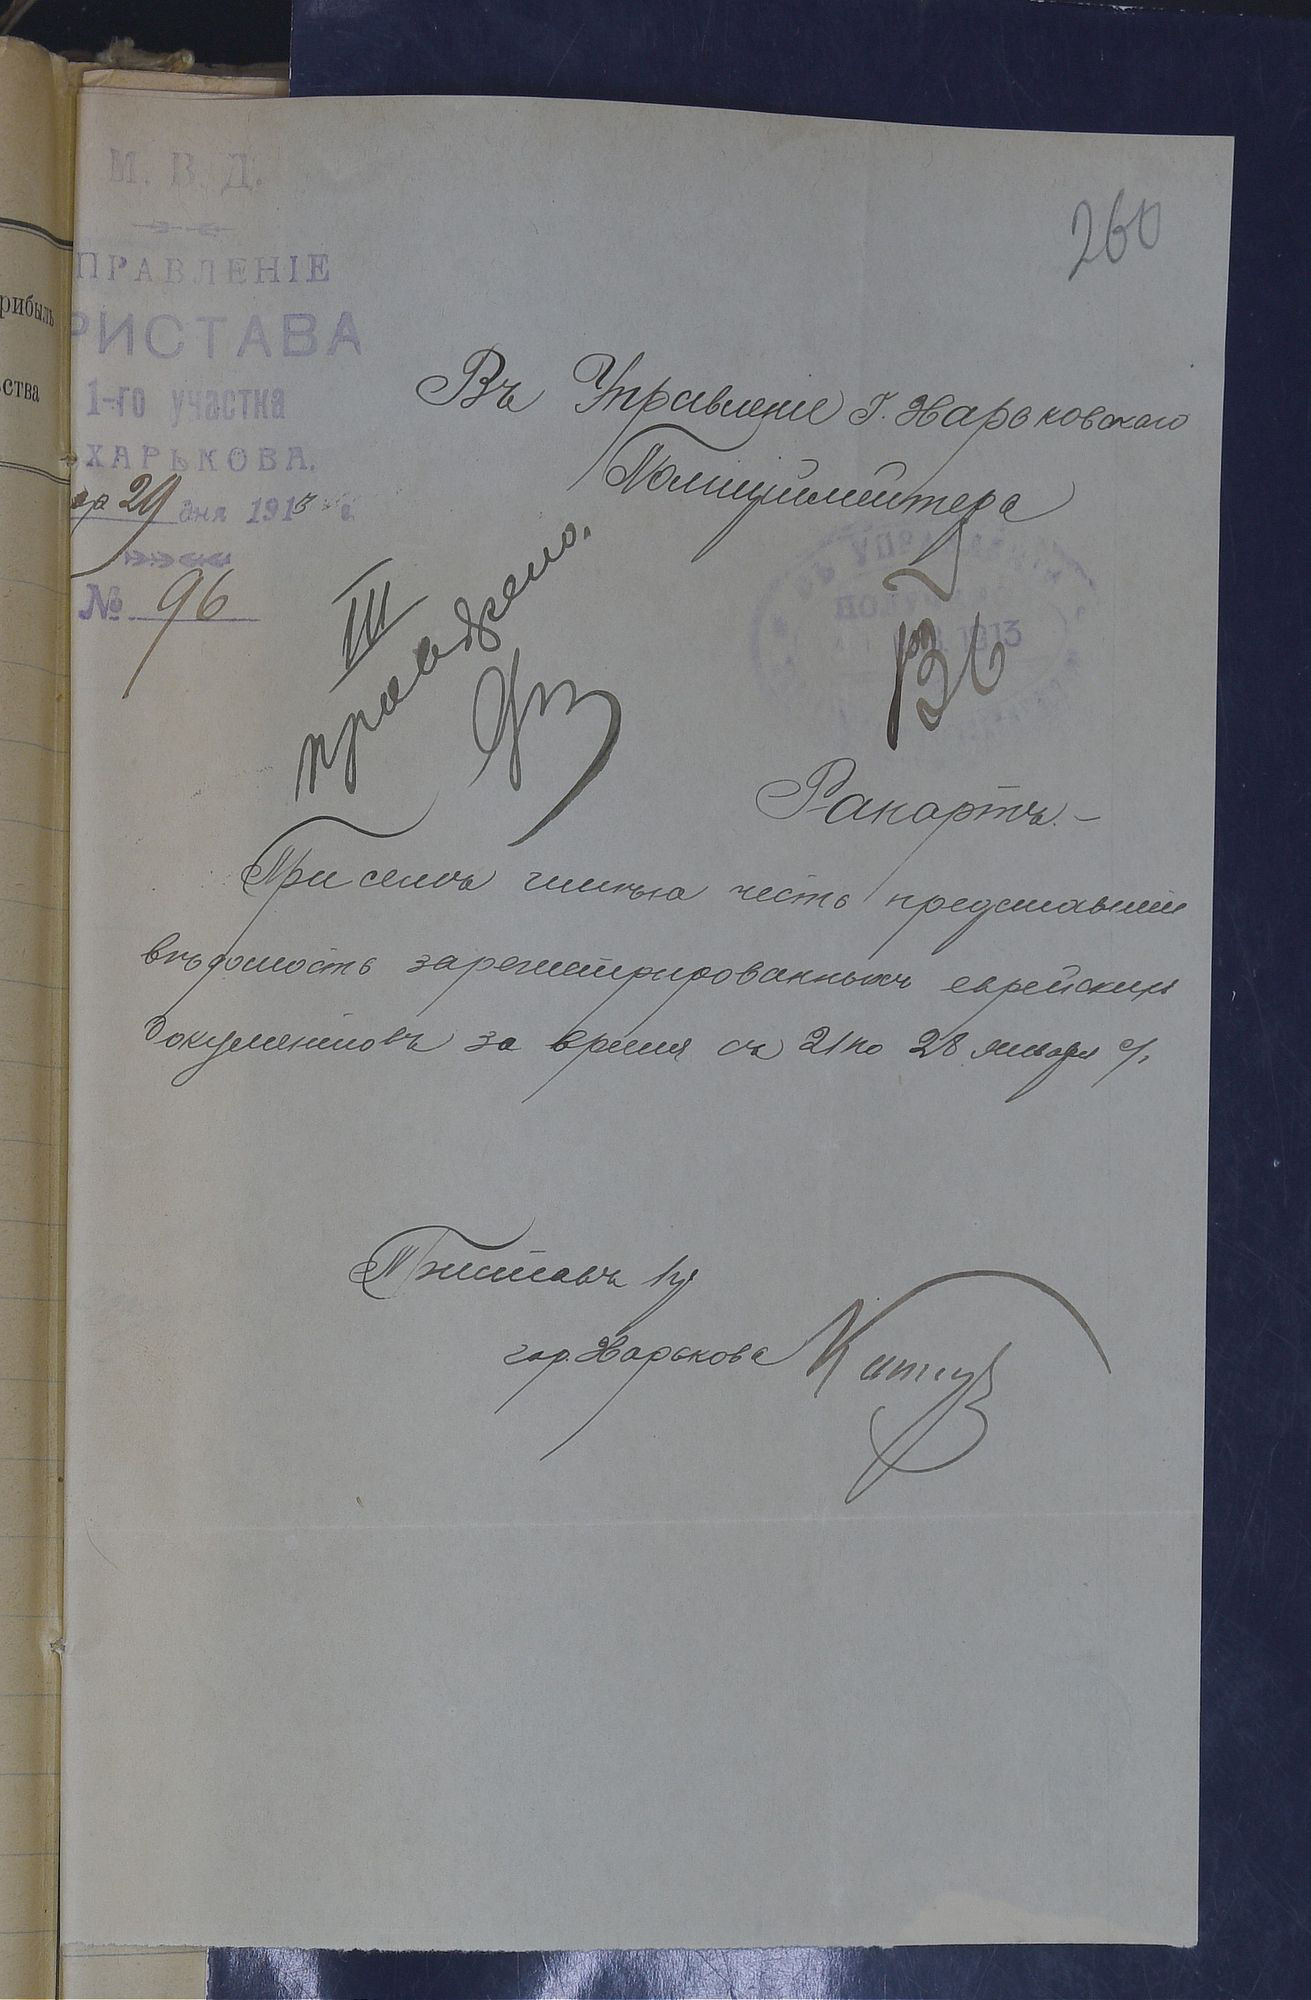 260
М. В. Д.
ПРАВЛЕНІЕ
РИСТАВА
1-го участка
ХАРЬКОВА.
29 дня 1913
№ 96
рибыль
ства
Въ Управленіе Г. Харьковскаго
Полиціймейстера
ВЪ УПРАВЛЕНІИ
ПОЛУЧЕНО
1913
III
Рапортъ.-
При семъ имѣю честь представить
вѣдомость зарегистрированныхъ еврейскихъ
документовъ за время съ 21 по 28 января с/г.
Приставъ 1 уч
гор. Харькова